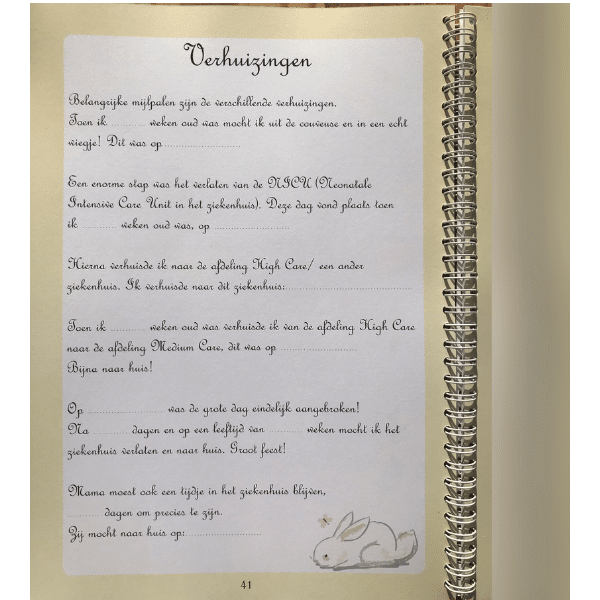 Verhuizingen
Belangrijke mijlpalen zijn de verschillende verhuizingen.
Toen ik ............ weken oud was mocht ik uit de couveuse en in een echt
wiegje! Dit was op..........................
Een enorme stap was het verlaten van de NICU (Neonatale
Intensive Care Unit in het ziekenhuis). Deze dag vond plaats toen
ik ............ weken oud was, op ..........................
Hierna verhuisde ik naar de afdeling High Care/ een ander
ziekenhuis. Ik verhuisde naar dit ziekenhuis:..........................................
Toen ik ............ weken oud was verhuisde ik van de afdeling High Care
naar de afdeling Medium Care, dit was op ..........................
Bijna naar huis!
Op .......................... was de grote dag eindelijk aangebroken!
Na ............ dagen en op een leeftijd van ............ weken mocht ik het
ziekenhuis verlaten en naar huis. Groot feest!
Mama moest ook een tijdje in het ziekenhuis blijven,
............ dagen om precies te zijn.
Zij mocht naar huis op:..........................
41